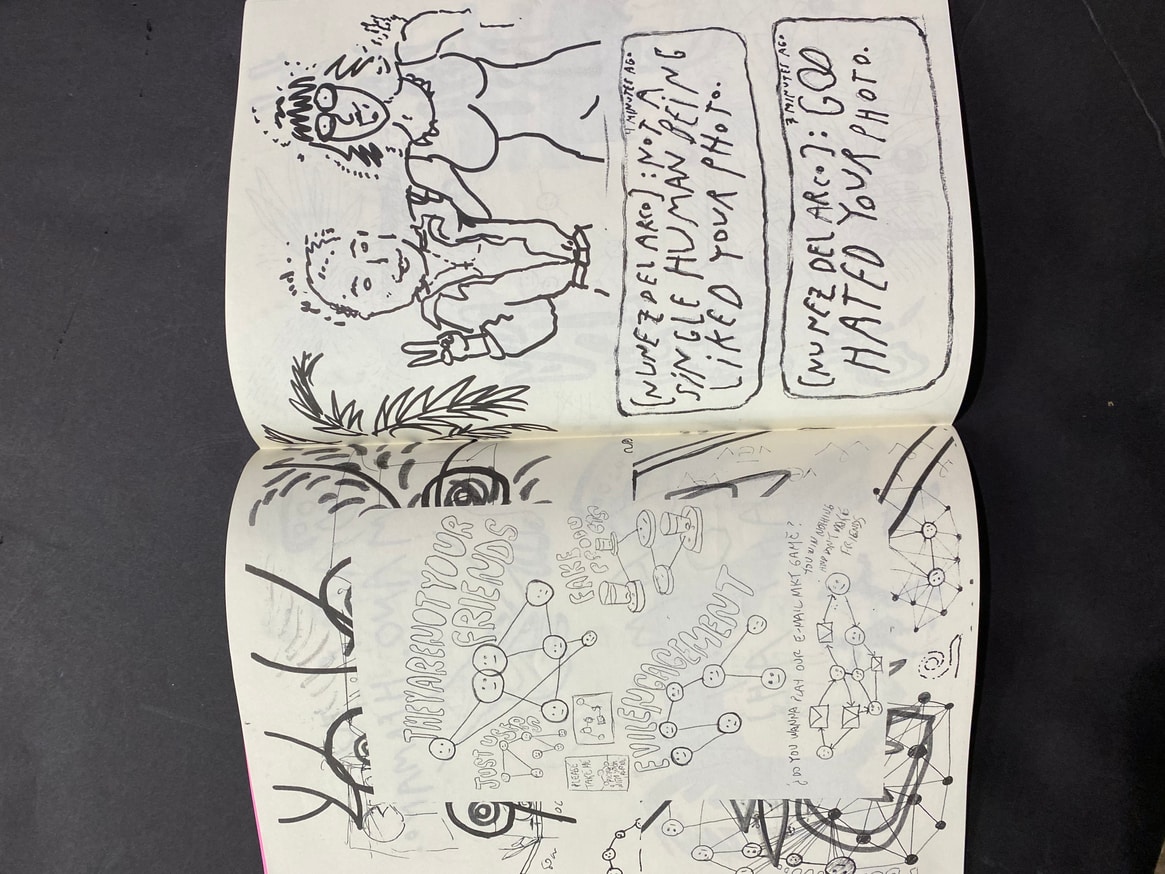 4 MINUTES AGO
[NUNEZ DEL ARCO]: NOT A
SINGLE HUMAN BEING
LIKED YOUR PHOTO.
7 MINUTES AGO
[NUNEZ DEL ARCO]: GOD
HATED YOUR PHOTO.
THEY ARE NOT YOUR
FRIENDS
JUST USERS
FAKE FOOD
PLEASE
TAKE ME
EVIL ENGAGEMENT
¿DO YOU WANNA PLAY OUR E-MAIL MKT GAME?
YOU WIN NOTHING
AND DON'T MAKE
FRIENDS